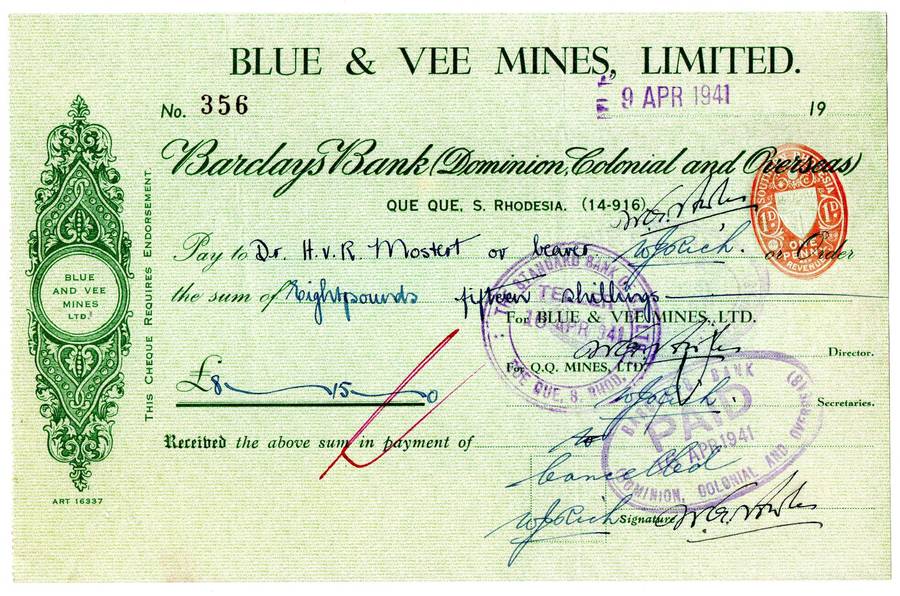 BLUE & VEE MINES, LIMITED.
No. 356
9 APR 1941
19
Barclays Bank (Dominion, Colonial and Overseas)
QUE QUE, S. RHODESIA. (14-916)
SOUTHERN RHODESIA
1D 1D
ONE PENNY
REVENUE
Pay to Dr. H.v.R. Mostert or bearer or Order
the sum of Eight pounds fifteen shillings
THE STANDARD BANK OF S.A. LTD.
TELLER
APR 1941
QUE QUE, S. RHOD.
For BLUE & VEE MINES, LTD.
Director.
For Q.Q. MINES, LTD.
£8 15 0
Secretaries.
BARCLAYS BANK (B)
PAID
APR 1941
DOMINION, COLONIAL AND OVERSEAS
Received the above sum in payment of
Cancelled
WJRich Signature
THIS CHEQUE REQUIRES ENDORSEMENT.
BLUE
AND VEE
MINES
LTD.
ART 16337